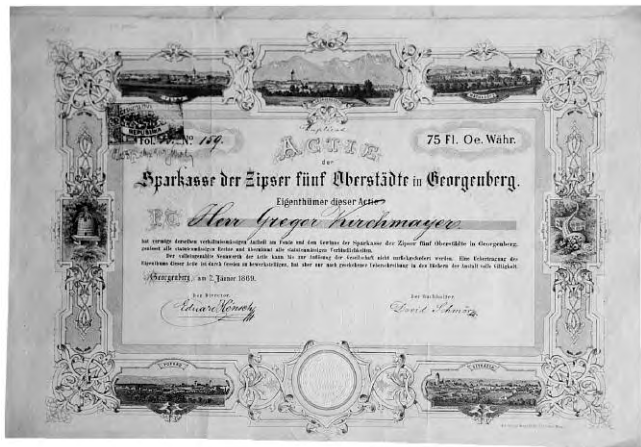 Duplicat
ACTIE
Fol. No. 159.
75 Fl. Oe. Währ.
der
Sparkasse der Zipser fünf Oberstädte in Georgenberg.
Eigenthümer dieser Actie
Herr Greger Kirchmayer
hat vermöge derselben verhältnissmässigen Antheil am Fonde und dem Gewinne der Sparkasse der Zipser fünf Oberstädte in Georgenberg,
geniesst alle statutenmässigen Rechte und übernimmt alle statutenmässigen Verbindlichkeiten.
Der volleingezahlte Nennwerth der Actie kann bis zur Auflösung der Gesellschaft nicht zurückgefordert werden. Eine Uebertragung des
Eigenthums dieser Actie ist durch Cession zu bewerkstelligen, hat aber nur nach geschehener Ueberschreibung in den Büchern der Anstalt volle Giltigkeit.
Georgenberg, am 2. Jänner 1869.
Der Director. Der Buchhalter.
Eduard David Schmör